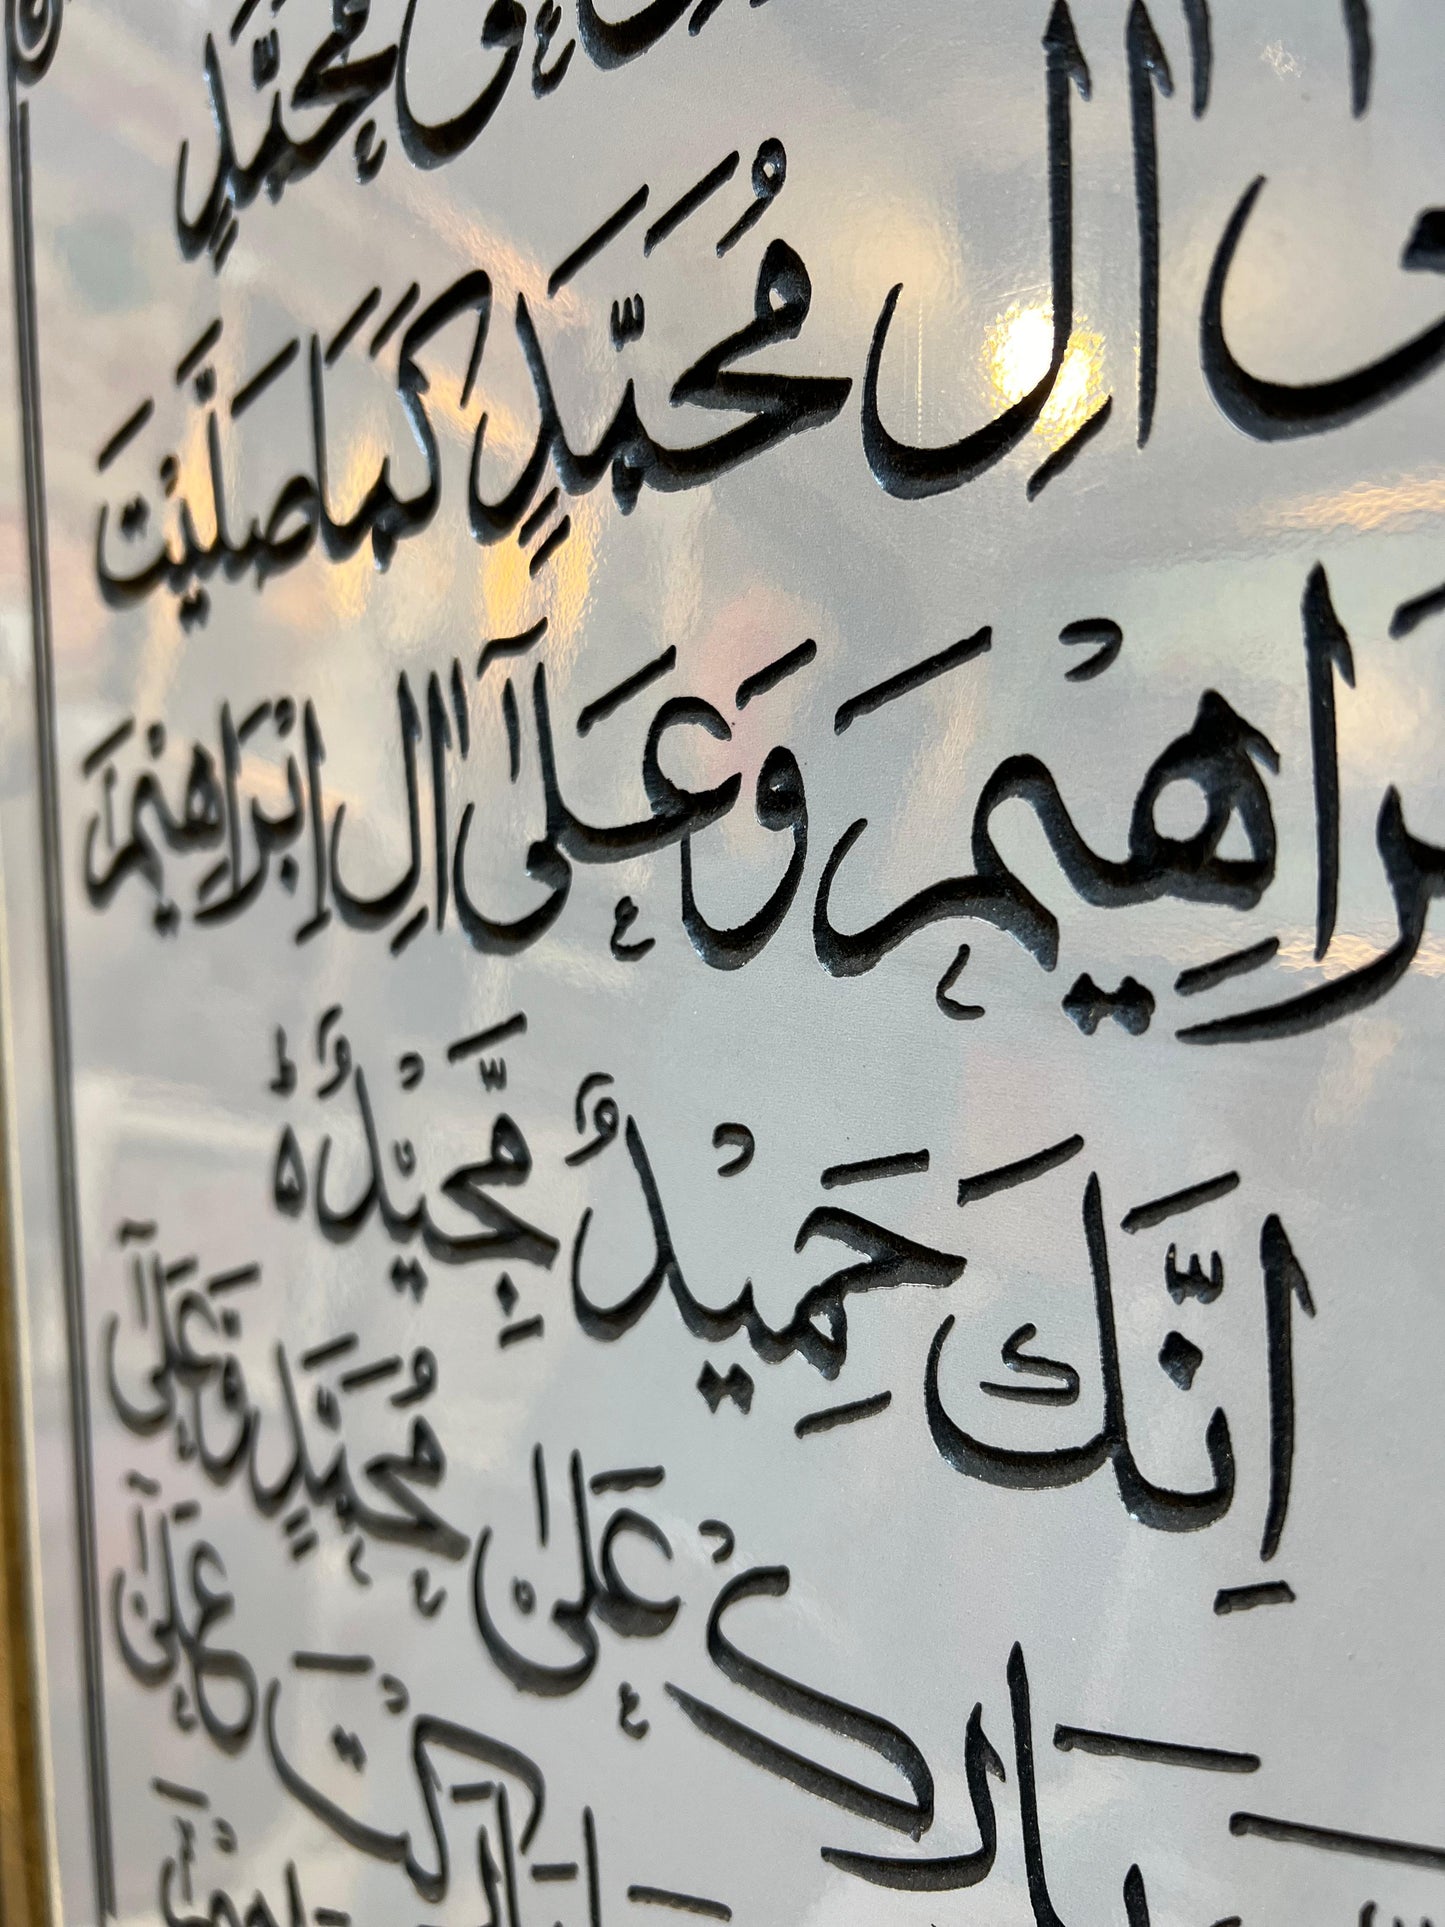 مُحَمَّدٍ وَّ
اٰلِ مُحَمَّدٍ كَمَا صَلَّيْتَ
اِبْرَاهِيْمَ وَعَلٰٓى اٰلِ اِبْرَاهِيْمَ
اِنَّكَ حَمِيْدٌ مَّجِيْدٌ ؕ
بَارِكْ عَلٰى مُحَمَّدٍ وَّعَلٰٓى
بَارَكْتَ عَلٰٓى